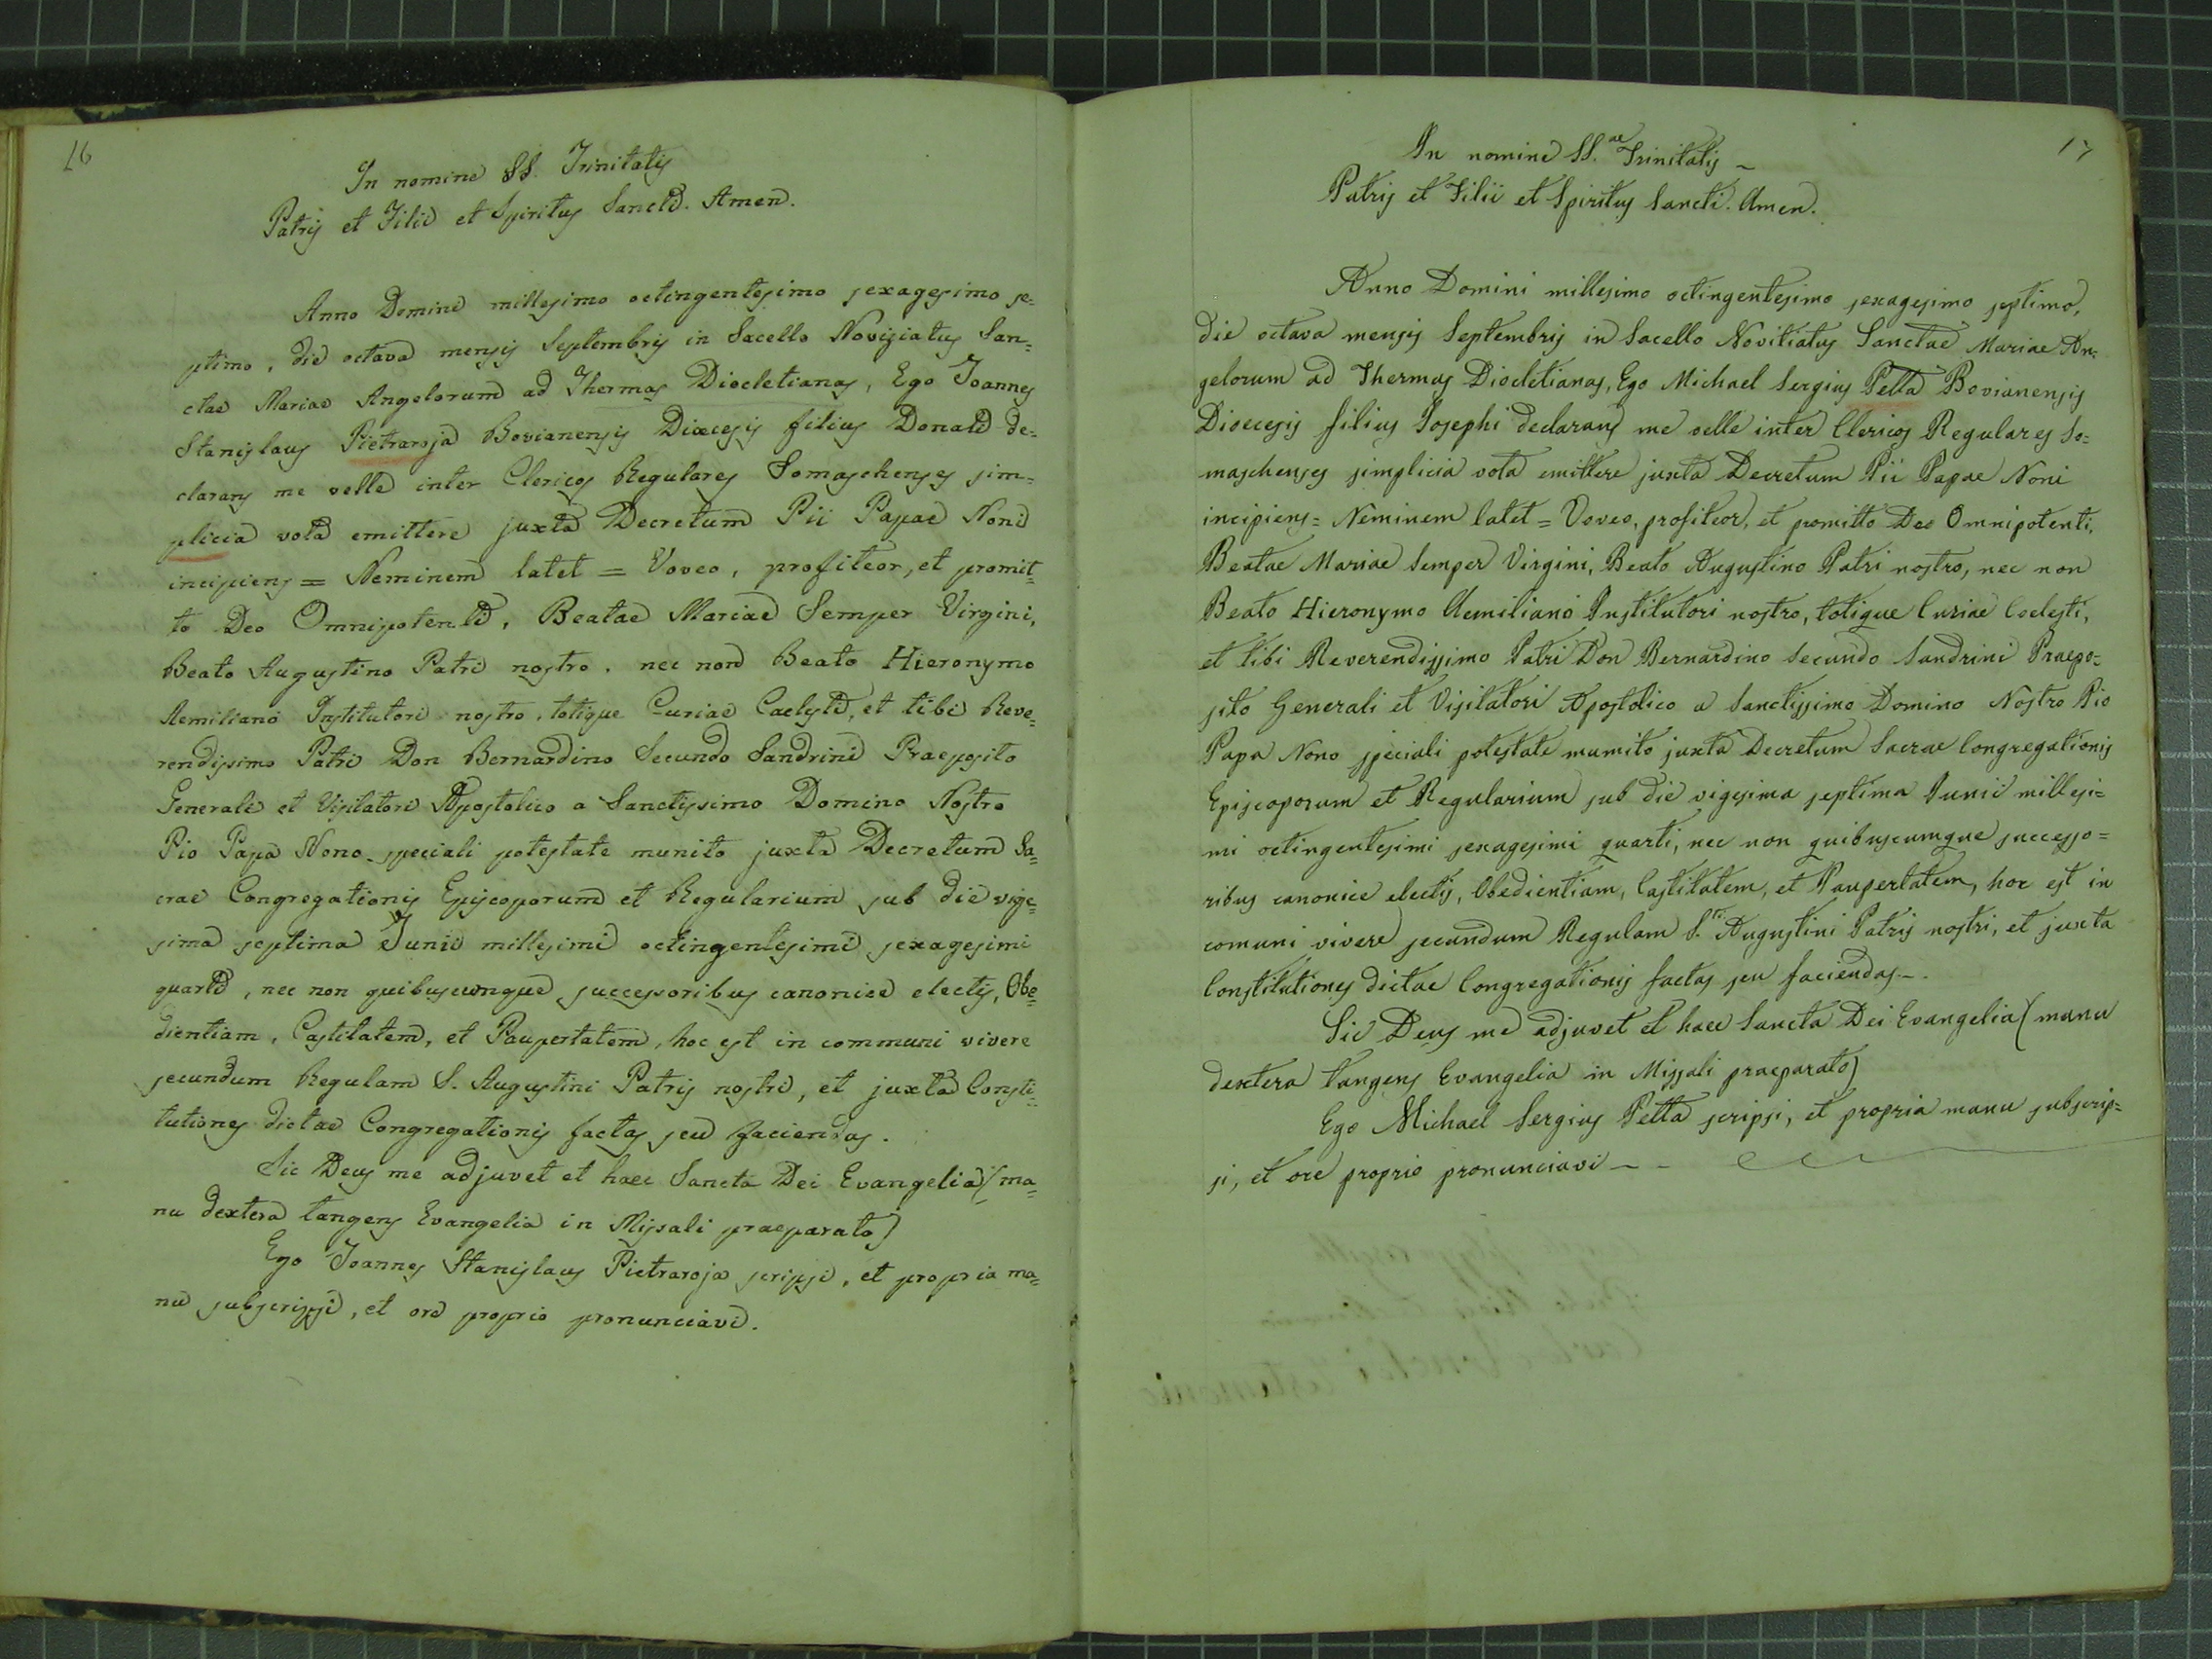 16
In nomine SS. Trinitatis
Patris et Filii et Spiritus Sancti. Amen.
Anno Domini millesimo octingentesimo sexagesimo se=
ptimo, die octava mensis Septembris in Sacello Noviziatus San=
ctae Mariae Angelorum ad Thermas Diocletianas, Ego Joannes
Stanislaus Pietraroja Bovianensis Dioecesis filius Donati de=
clarans me velle inter Clericos Regulares Somaschenses sim=
plicia vota emittere juxta Decretum Pii Papae Noni
incipiens = Neminem latet = Voveo, profiteor, et promit=
to Deo Omnipotenti, Beatae Mariae Semper Virgini,
Beato Augustino Patri nostro, nec non Beato Hieronymo
Aemiliano Institutori nostro, totique Curiae Caelesti, et tibi Reve=
rendissimo Patri Don Bernardino Secundo Sandrini Praeposito
Generali et Visitatori Apostolico a Sanctissimo Domino Nostro
Pio Papa Nono speciali potestate munito juxta Decretum Sa=
crae Congregationis Episcoporum et Regularium sub die vige=
sima septima Junii millesimi octingentesimi sexagesimi
quarti, nec non quibuscumque successoribus canonice electis, Obe=
dientiam, Castitatem, et Paupertatem, hoc est in communi vivere
secundum Regulam S. Augustini Patris nostri, et juxta Consti=
tutiones dictae Congregationis factas seu faciendas.
Sic Deus me adjuvet et haec Sancta Dei Evangelia (ma=
nu dextera tangens Evangelia in Missali praeparato)
Ego Joannes Stanislaus Pietraroja scripsi, et propria ma=
nu subscripsi, et ore proprio pronunciavi.
17
In nomine SS.ae Trinitatis –
Patris et Filii et Spiritus Sancti. Amen.
Anno Domini millesimo octingentesimo sexagesimo septimo,
die octava mensis Septembris in Sacello Novitiatus Sanctae Mariae An=
gelorum ad Thermas Diocletianas, Ego Michael Sergius Petta Bovianensis
Dioecesis filius Josephi declarans me velle inter Clericos Regulares So=
maschenses simplicia vota emittere juxta Decretum Pii Papae Noni
incipiens = Neminem latet = Voveo, profiteor, et promitto Deo Omnipotenti,
Beatae Mariae Semper Virgini, Beato Augustino Patri nostro, nec non
Beato Hieronymo Aemiliano Institutori nostro, totique Curiae Coelesti,
et tibi Reverendissimo Patri Don Bernardino Secundo Sandrini Praepo=
sito Generali et Visitatori Apostolico a Sanctissimo Domino Nostro Pio
Papa Nono speciali potestate munito juxta Decretum Sacrae Congregationis
Episcoporum et Regularium sub die vigesima septima Junii millesi=
mi octingentesimi sexagesimi quarti, nec non quibuscumque successo=
ribus canonice electis, Obedientiam, Castitatem, et Paupertatem, hoc est in
comuni vivere secundum Regulam S.ti Augustini Patris nostri, et juxta
Constitutiones dictae Congregationis factas seu faciendas –.
Sic Deus me adjuvet et haec Sancta Dei Evangelia (manu
dextera tangens Evangelia in Missali praeparato)
Ego Michael Sergius Petta scripsi, et propria manu subscrip=
si, et ore proprio pronunciavi – –